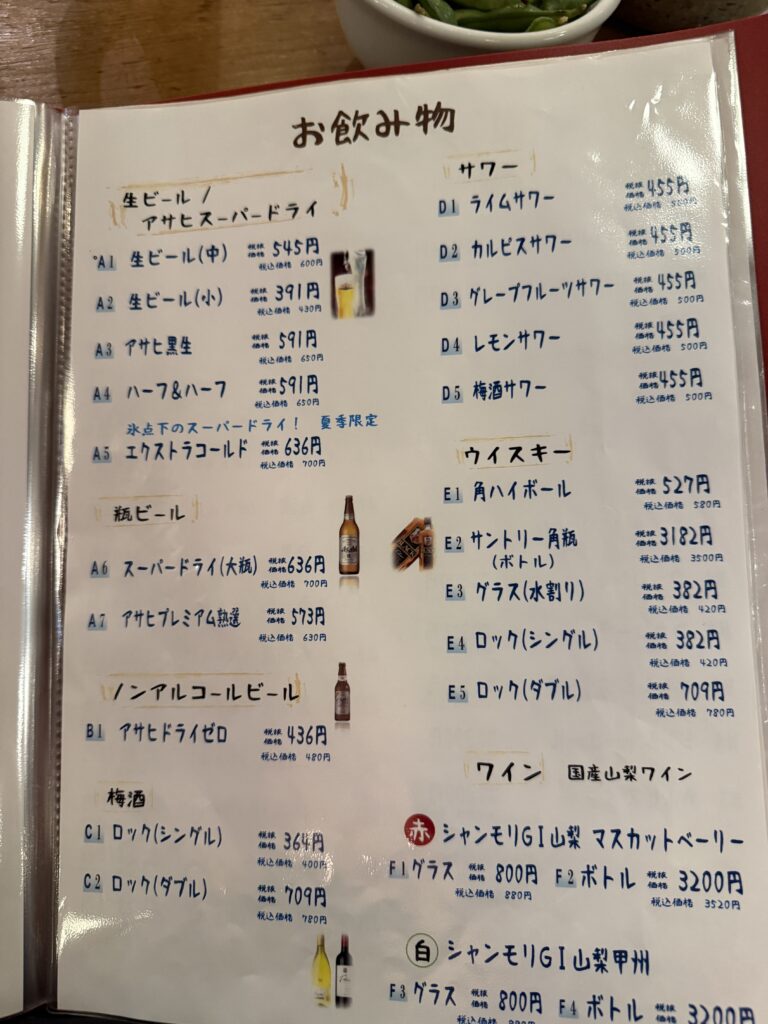 お飲み物
生ビール /
アサヒスーパードライ
A1 生ビール(中) 税抜価格 545円
税込価格 600円
A2 生ビール(小) 税抜価格 391円
税込価格 430円
A3 アサヒ黒生 税抜価格 591円
税込価格 650円
A4 ハーフ&ハーフ 税抜価格 591円
税込価格 650円
氷点下のスーパードライ! 夏季限定
A5 エクストラコールド 税抜価格 636円
税込価格 700円
瓶ビール
A6 スーパードライ(大瓶) 税抜価格 636円
税込価格 700円
A7 アサヒプレミアム熟選 税抜価格 573円
税込価格 630円
ノンアルコールビール
B1 アサヒドライゼロ 税抜価格 436円
税込価格 480円
梅酒
C1 ロック(シングル) 税抜価格 364円
税込価格 400円
C2 ロック(ダブル) 税抜価格 709円
税込価格 780円
サワー
D1 ライムサワー 税抜価格 455円
税込価格 500円
D2 カルピスサワー 税抜価格 455円
税込価格 500円
D3 グレープフルーツサワー 税抜価格 455円
税込価格 500円
D4 レモンサワー 税抜価格 455円
税込価格 500円
D5 梅酒サワー 税抜価格 455円
税込価格 500円
ウイスキー
E1 角ハイボール 税抜価格 527円
税込価格 580円
E2 サントリー角瓶 税抜価格 3182円
(ボトル) 税込価格 3500円
E3 グラス(水割り) 税抜価格 382円
税込価格 420円
E4 ロック(シングル) 税抜価格 382円
税込価格 420円
E5 ロック(ダブル) 税抜価格 709円
税込価格 780円
ワイン 国産山梨ワイン
赤 シャンモリGI山梨 マスカットベーリー
F1 グラス 税抜価格 800円 F2 ボトル 税抜価格 3200円
税込価格 880円 税込価格 3520円
白 シャンモリGI山梨甲州
F3 グラス 税抜価格 800円 F4 ボトル 税抜価格 3200円